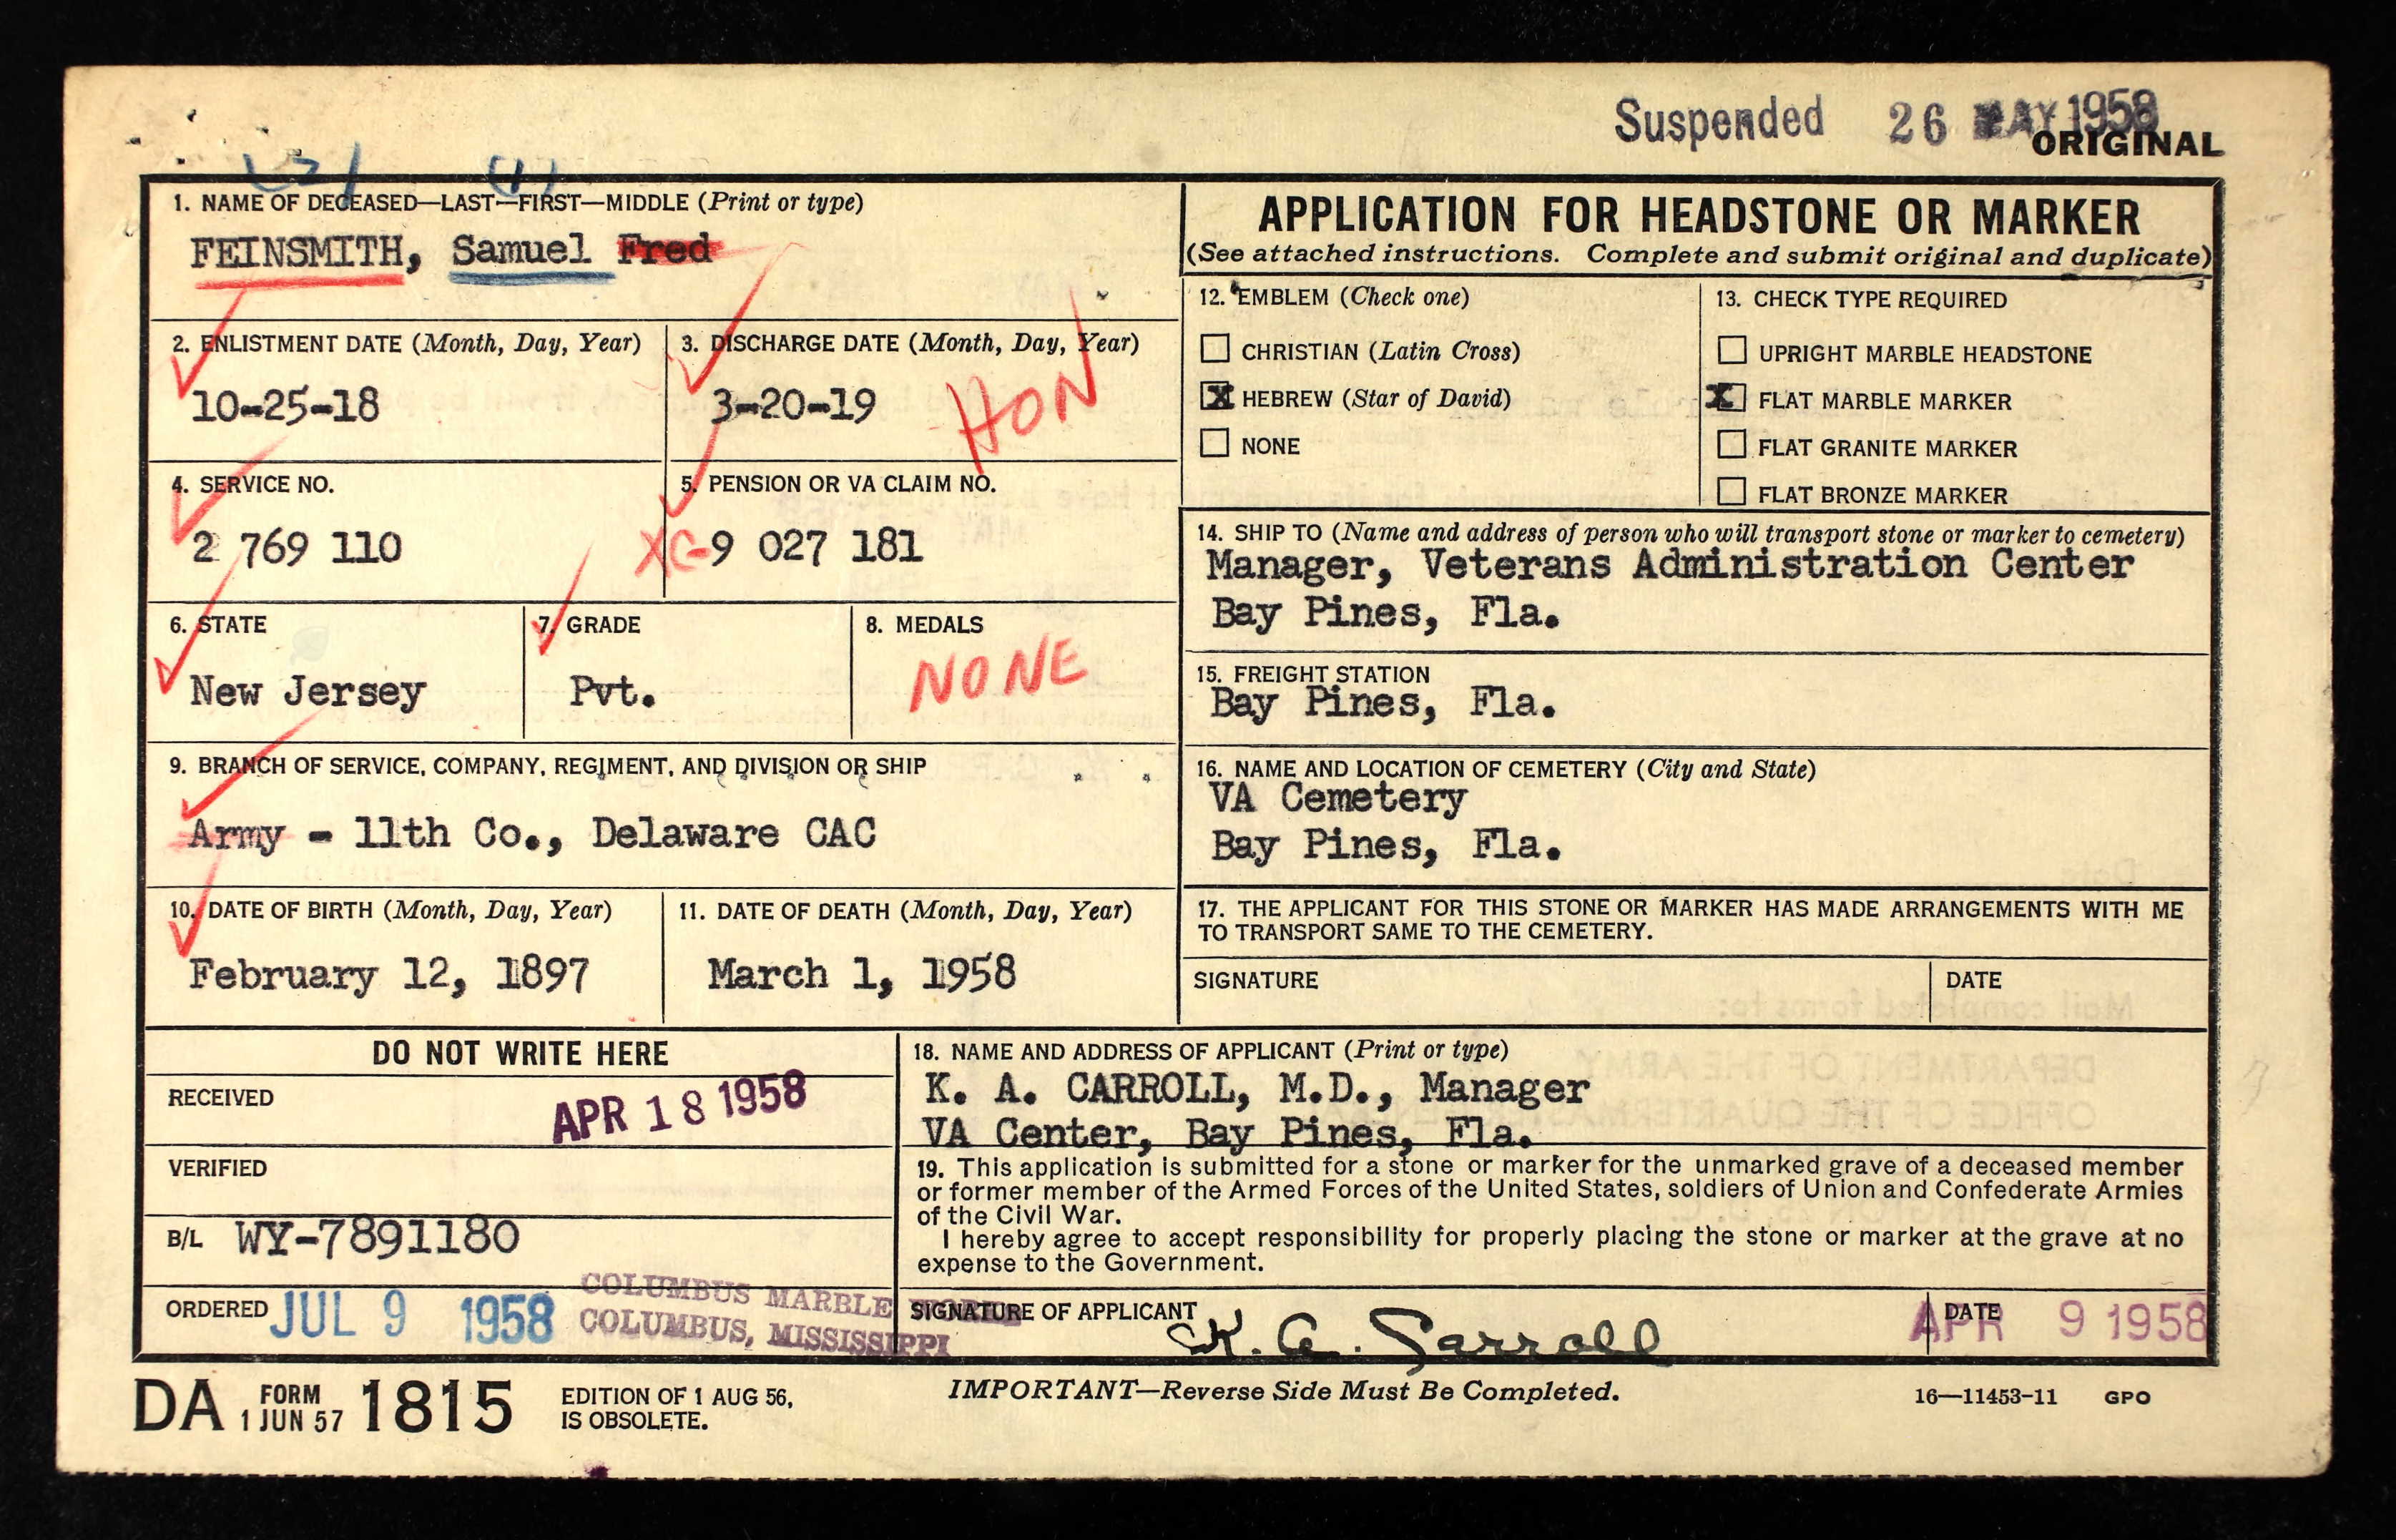 Suspended 26 MAY 1958
ORIGINAL
(2) (1)
1. NAME OF DECEASED—LAST—FIRST—MIDDLE (Print or type)
FEINSMITH, Samuel Fred
2. ENLISTMENT DATE (Month, Day, Year)
10-25-18
3. DISCHARGE DATE (Month, Day, Year)
3-20-19
HON
4. SERVICE NO.
2 769 110
5. PENSION OR VA CLAIM NO.
XC-9 027 181
6. STATE
New Jersey
7. GRADE
Pvt.
8. MEDALS
NONE
9. BRANCH OF SERVICE, COMPANY, REGIMENT, AND DIVISION OR SHIP
Army - 11th Co., Delaware CAC
10. DATE OF BIRTH (Month, Day, Year)
February 12, 1897
11. DATE OF DEATH (Month, Day, Year)
March 1, 1958
APPLICATION FOR HEADSTONE OR MARKER
(See attached instructions. Complete and submit original and duplicate)
12. EMBLEM (Check one)
CHRISTIAN (Latin Cross)
X HEBREW (Star of David)
NONE
13. CHECK TYPE REQUIRED
UPRIGHT MARBLE HEADSTONE
X FLAT MARBLE MARKER
FLAT GRANITE MARKER
FLAT BRONZE MARKER
14. SHIP TO (Name and address of person who will transport stone or marker to cemetery)
Manager, Veterans Administration Center
Bay Pines, Fla.
15. FREIGHT STATION
Bay Pines, Fla.
16. NAME AND LOCATION OF CEMETERY (City and State)
VA Cemetery
Bay Pines, Fla.
17. THE APPLICANT FOR THIS STONE OR MARKER HAS MADE ARRANGEMENTS WITH ME
TO TRANSPORT SAME TO THE CEMETERY.
SIGNATURE
DATE
DO NOT WRITE HERE
RECEIVED
APR 18 1958
VERIFIED
B/L WY-7891180
ORDERED JUL 9 1958
COLUMBUS MARBLE WORKS
COLUMBUS, MISSISSIPPI
18. NAME AND ADDRESS OF APPLICANT (Print or type)
K. A. CARROLL, M.D., Manager
VA Center, Bay Pines, Fla.
19. This application is submitted for a stone or marker for the unmarked grave of a deceased member
or former member of the Armed Forces of the United States, soldiers of Union and Confederate Armies
of the Civil War.
I hereby agree to accept responsibility for properly placing the stone or marker at the grave at no
expense to the Government.
SIGNATURE OF APPLICANT
K. A. Carroll
DATE
APR 9 1958
DA FORM 1 JUN 57 1815
EDITION OF 1 AUG 56,
IS OBSOLETE.
IMPORTANT—Reverse Side Must Be Completed.
16—11453-11 GPO